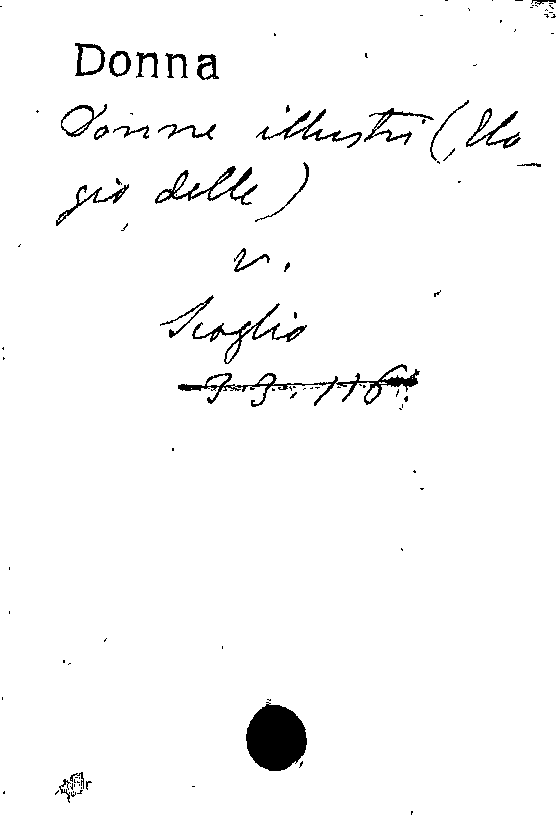 Donna
Donne illustri (Elo-
gio delle)
v.
Scoglio
33.116